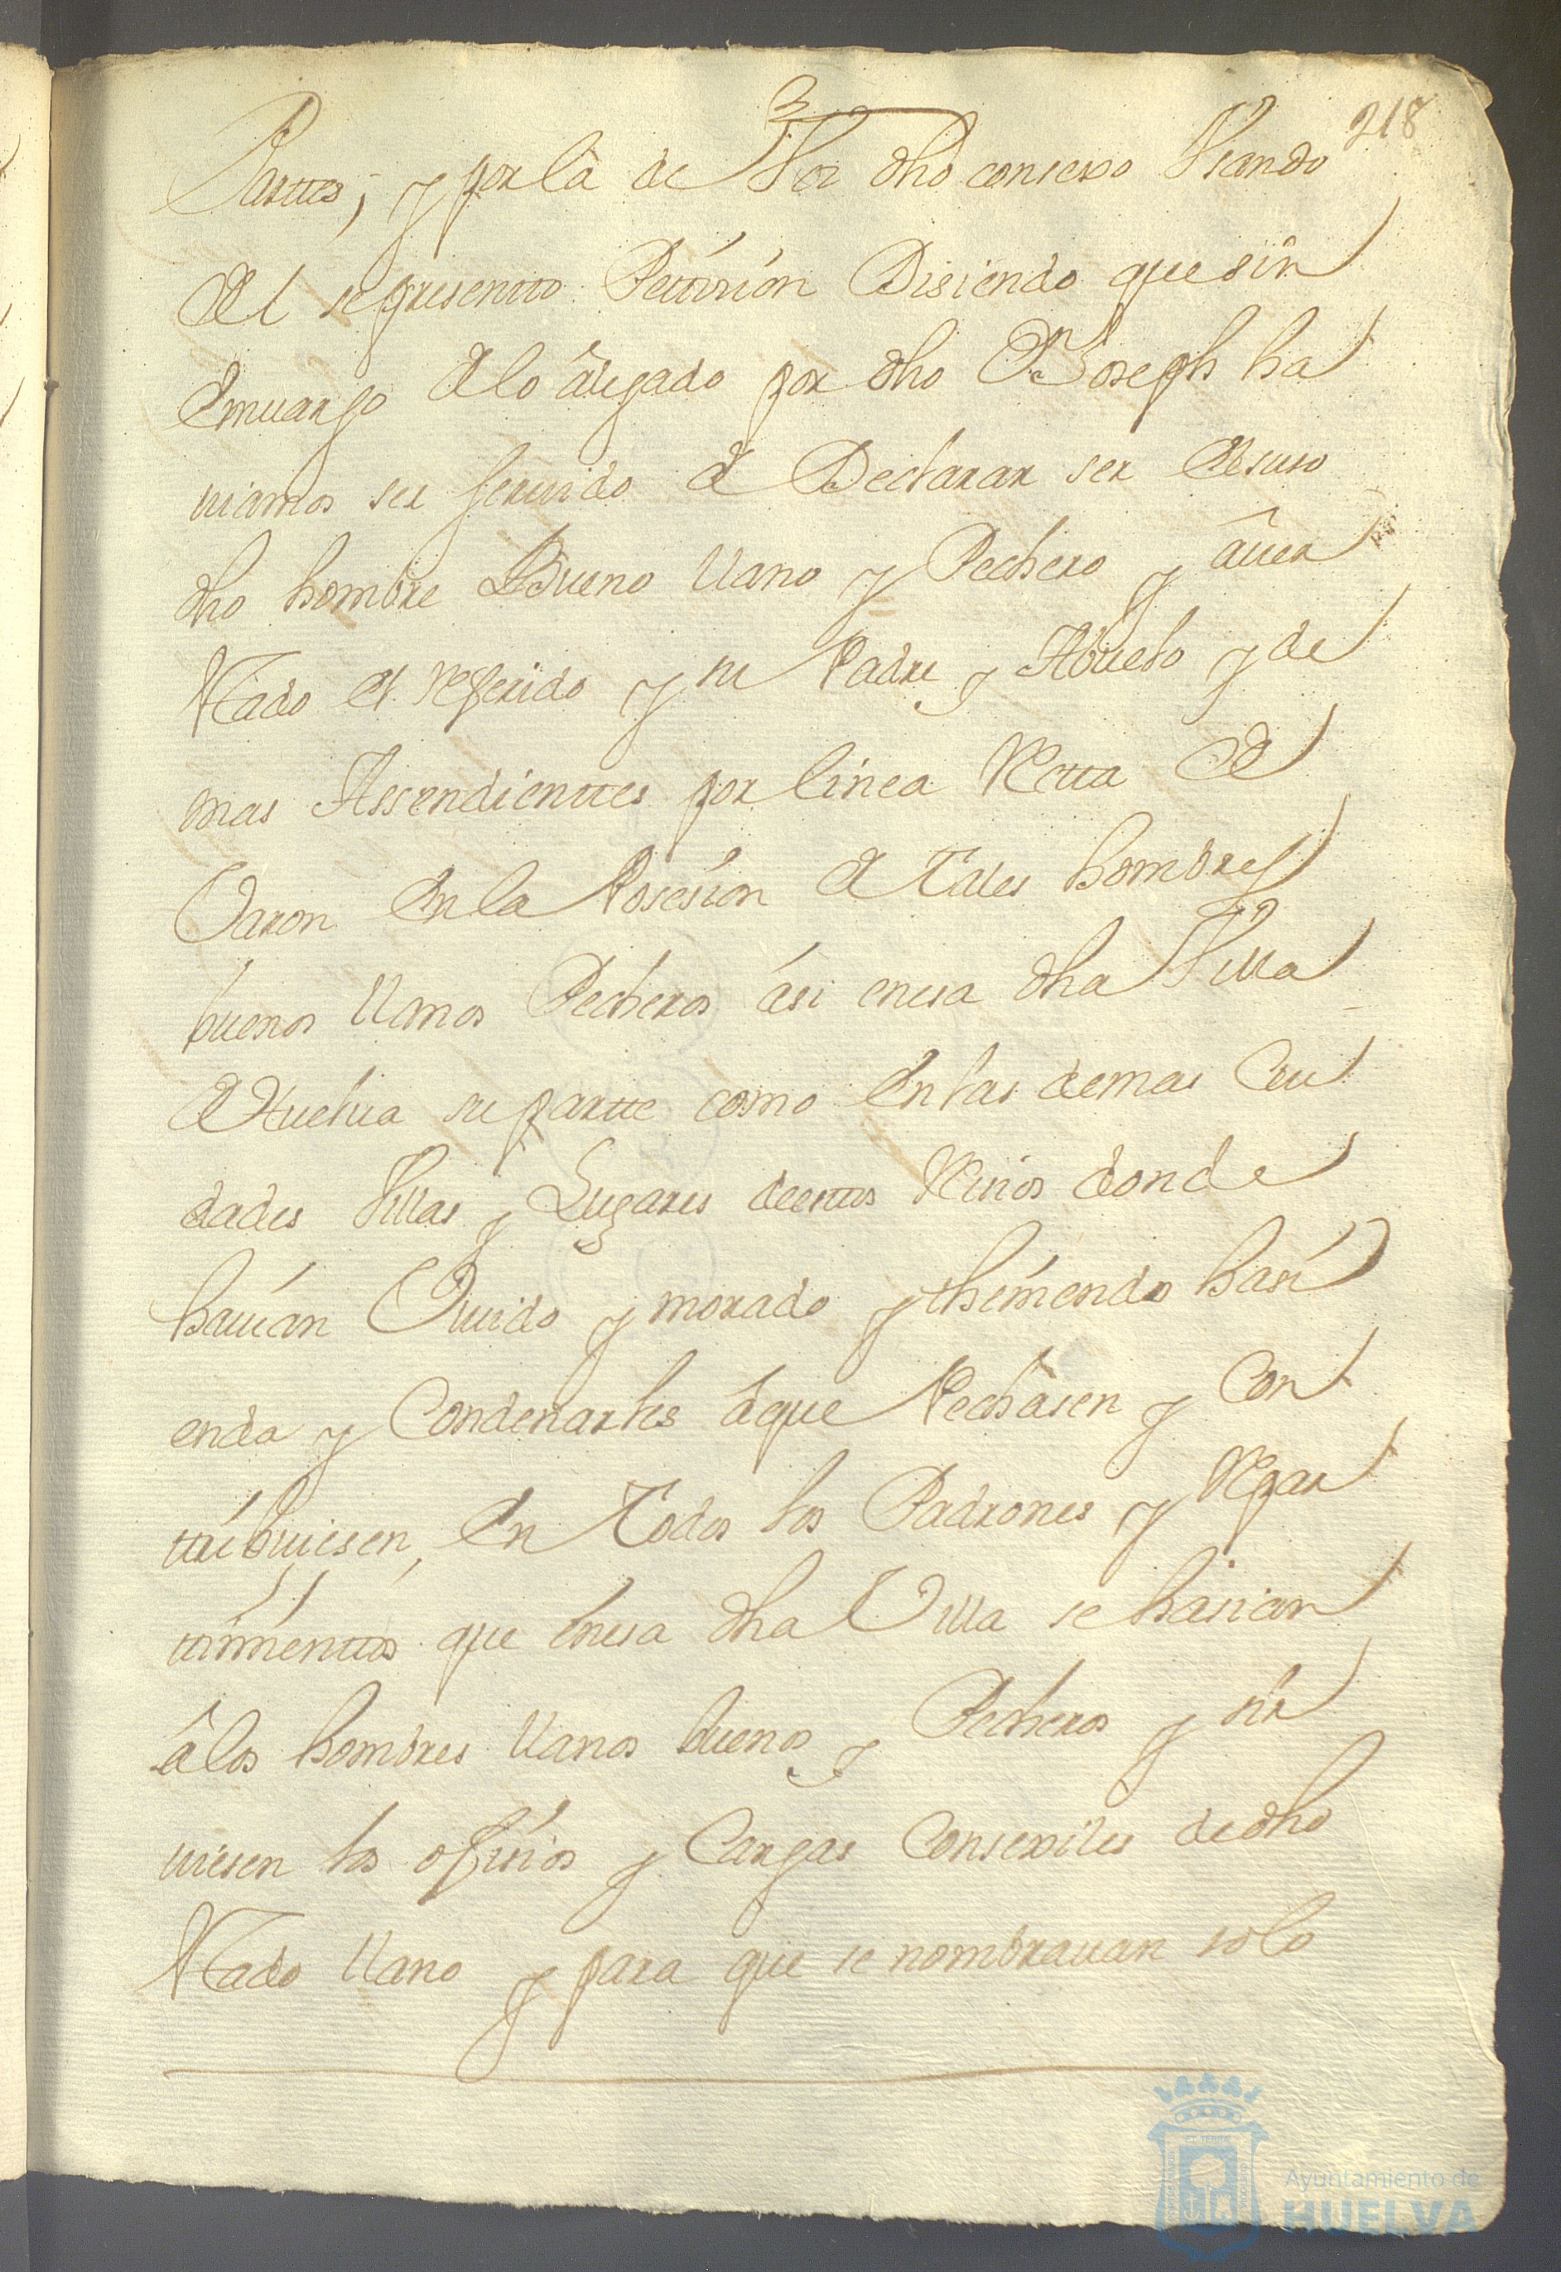 3
218
Parttes, y por la de Vos dho consexo Vsando
del se presentto Pettision Disiendo que sin
Embargo de lo alegado por dho Dn Joseph ha
uiamos ser seruido de Declarar ser el suso
dho hombre Bueno llano y Pechero y auer
esttado el referido y su Padre y Abuelo y de
mas Assendienttes por linea Rectta de
Varon en la Posesion de Tales hombres
buenos llanos Pecheros asi en esa dha Villa
de Huelua su partte como en las demas Ciu
dades Villas y Lugares de esttos Reinos donde
hauian Viuido y morado y theniendo hasi
enda y Condenarles a que Pechasen y Con
ttribuiesen, en Todos los Padrones y Repar
timienttos que en esa dha Villa se hasian
a los hombres llanos buenos y Pecheros y sir
uiesen los ofisios y Cargas Consexiles de dho
esttado llano y para que se nombrauan solo
Ayuntamiento de
HUELVA